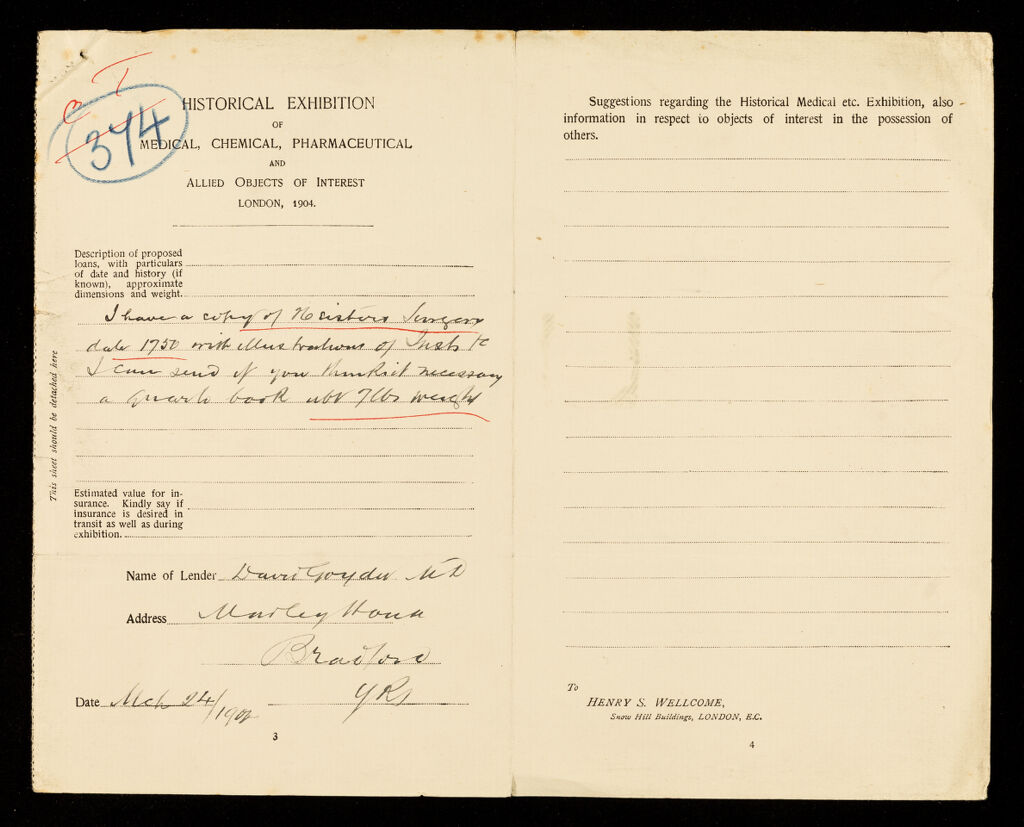 T
374
HISTORICAL EXHIBITION
OF
MEDICAL, CHEMICAL, PHARMACEUTICAL
AND
ALLIED OBJECTS OF INTEREST
LONDON, 1904.
Description of proposed
loans, with particulars
of date and history (if
known), approximate
dimensions and weight.
I have a copy of Heisters Surgery
date 1750 with illustrations of Insts &c
I can send if you think it necessary
a quarto book abt 7 lbs weight
Estimated value for in-
surance. Kindly say if
insurance is desired in
transit as well as during
exhibition.
Name of Lender David Goyder MD
Address Manley House
Bradford
Date Mch 24/190
3
This sheet should be detached here
Suggestions regarding the Historical Medical etc. Exhibition, also
information in respect to objects of interest in the possession of
others.
To
HENRY S. WELLCOME,
Snow Hill Buildings, LONDON, E.C.
4